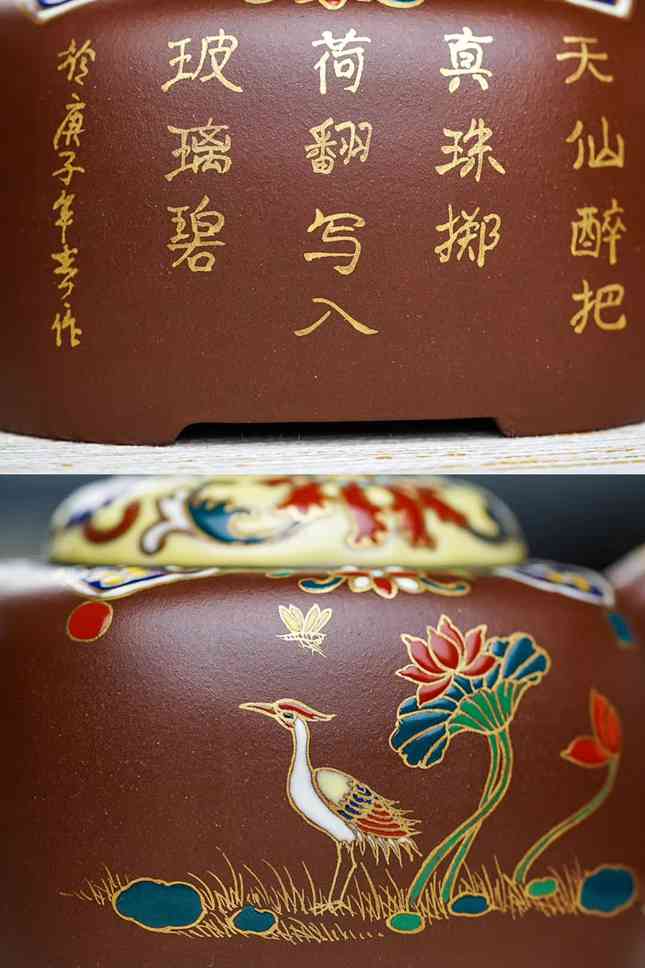 天仙醉把
真珠掷
荷翻写入
玻璃碧
於庚子年作